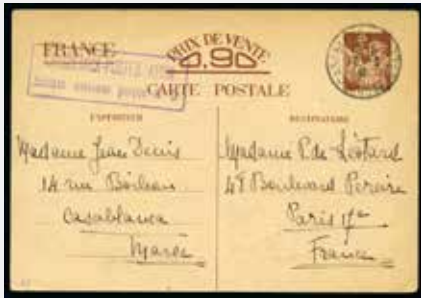 FRANCE
PRIX DE VENTE
0,90
CARTE POSTALE
EXPÉDITEUR
DESTINATAIRE
Madame Jean Denis
14 rue Boileau
Casablanca
Maroc
Madame P. de Léotard
48 Boulevard Pereire
Paris 17e
France